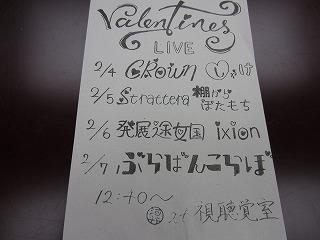 Valentines
LIVE
2/4 CRown
2/5 Strattera 棚からぼたもち
2/6 発展途女国 ixion
2/7 ぶらばんこらぼ
12:40～
2+1 視聴覚室